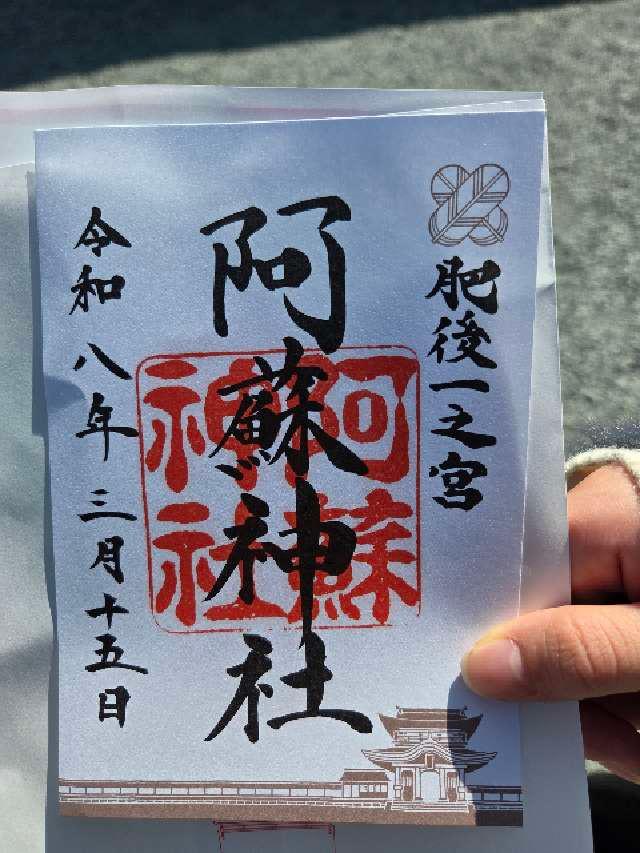 肥後一之宮
阿蘇神社
阿蘇
神社
令和八年三月十五日